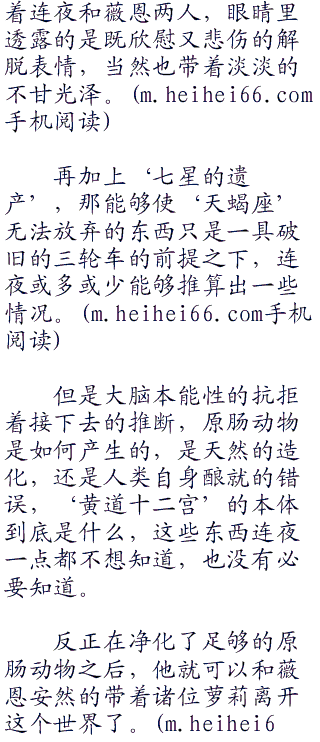 着连夜和薇恩两人，眼睛里
透露的是既欣慰又悲伤的解
脱表情，当然也带着淡淡的
不甘光泽。(m.heihei66.com
手机阅读)
再加上‘七星的遗
产’，那能够使‘天蝎座’
无法放弃的东西只是一具破
旧的三轮车的前提之下，连
夜或多或少能够推算出一些
情况。(m.heihei66.com手机
阅读)
但是大脑本能性的抗拒
着接下去的推断，原肠动物
是如何产生的，是天然的造
化，还是人类自身酿就的错
误，‘黄道十二宫’的本体
到底是什么，这些东西连夜
一点都不想知道，也没有必
要知道。
反正在净化了足够的原
肠动物之后，他就可以和薇
恩安然的带着诸位萝莉离开
这个世界了。(m.heihei6